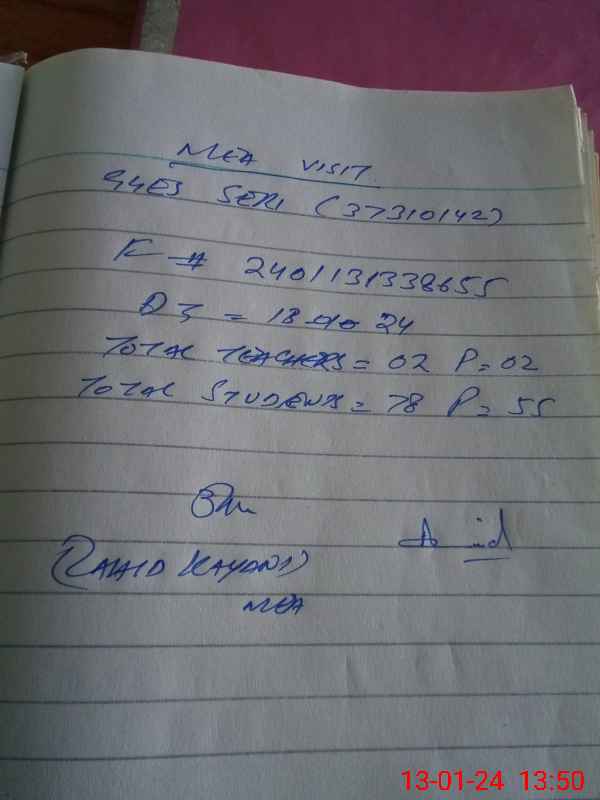 MEA VISIT
GGES SERI (37310142)
K # 2401131338655
TOTAL TEACHERS = 02 P = 02
TOTAL STUDENTS = 78 P = 55
KAYANI)
MEA
13-01-24 13:50